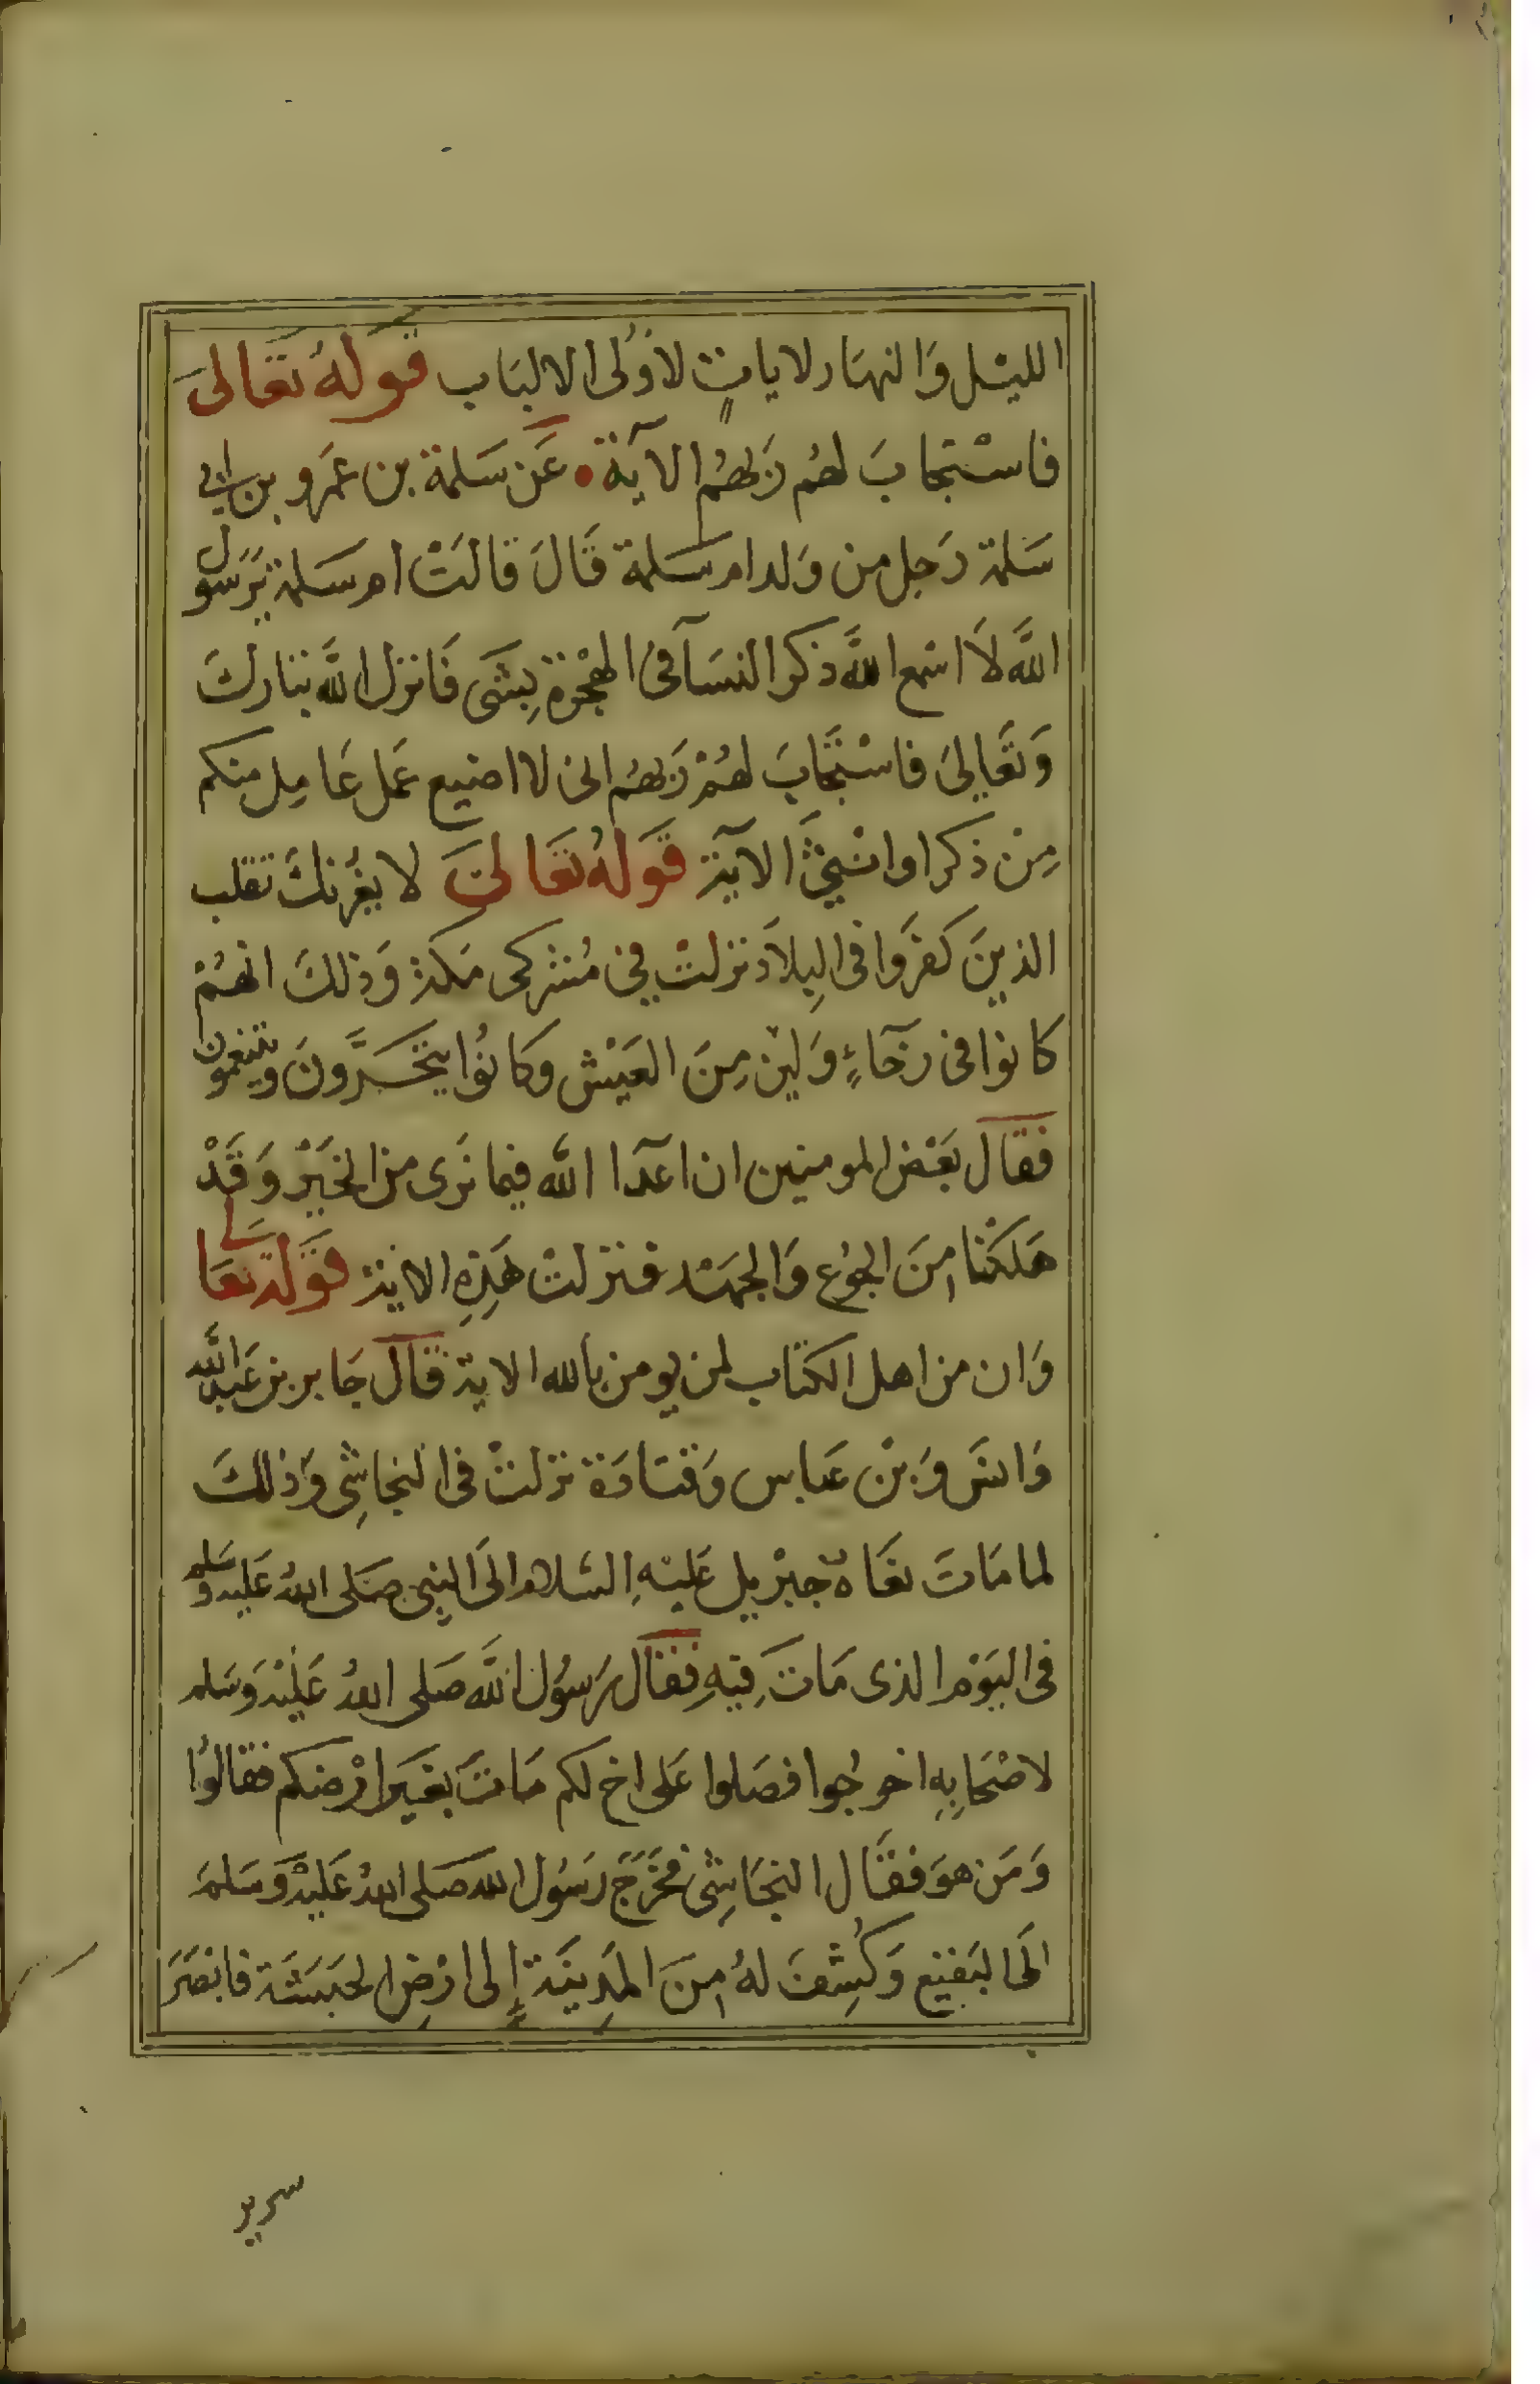 الليْل وَالنهَار لاياتٍ لاوُلى الالبَاب قَولهُ تعَالىَ
فاسْتجابَ لهُم رَبهُم الآية عَن سَلمة بن عَمرو بن ابى
سَلمة رَجل من وَلد ام سَلمة قَالَ قالتْ ام سَلمة يَرسول
اللَّه لاَ اسمع اللَّه ذكر النسَآ فى الهجْرة بِشَى فَانزل اللَّه تبَاركَ
وَتَعَالىَ فاسْتَجَابَ لهُمْ رَبهُم انى لا اضيع عَمل عَامِل منكم
مِنْ ذكر او انْثىَ الآية قَولهُ تعَالىَ لا يغُرنكَ تقلب
الذينَ كفرَوا فى البِلاَد نزلتْ فِى مُشركى مَكة وَذلكَ انهُمْ
كانوا فى رخَآءٍ وَلين مِنَ العَيْش وكانوُا يتجَرَّونَ ويتنعمون
فقال بَعْض المومنين ان اعدآ الله فيما نَرى من الخيَرْ وَقَدْ
هَلكنْا مِنَ الجوُع وَالجهَد فنزلتْ هَذِهِ الاية قَوله تعَالىَ
وَان من اهل الكتاب لمن يومن بالله الاية قال جَابر بن عَبد اللَّه
وَانسَ وَبنْ عَباس وَقتادَة نزلتْ فى النجاشِى وَذلكَ
لما مَاتَ نعَاهُ جبرْيل عَليْهِ السَلام الىَ النبِى صَلى اللهُ عَليه وَسَلم
فى اليَوْم الذى مَاتَ فِيهِ فقال رَسوُل اللَّه صَلى اللهُ عَليْه وَسَلم
لاصْحَابِهِ اخرجُوا فصَلوا عَلى اخ لكم مَاتَ بغيَر ارْضكم فقالوُا
وَمَن هوَ فقَال النجَاشِى فخَرَجَ رَسُول الله صَلى اللهُ عَليْه وَسَلمَ
الىَ البَقيع وَكُشِفَ لهُ مِنَ المَدِينَة إِلى ارْضِ الحَبَشَة فابْصَرَ
سرير